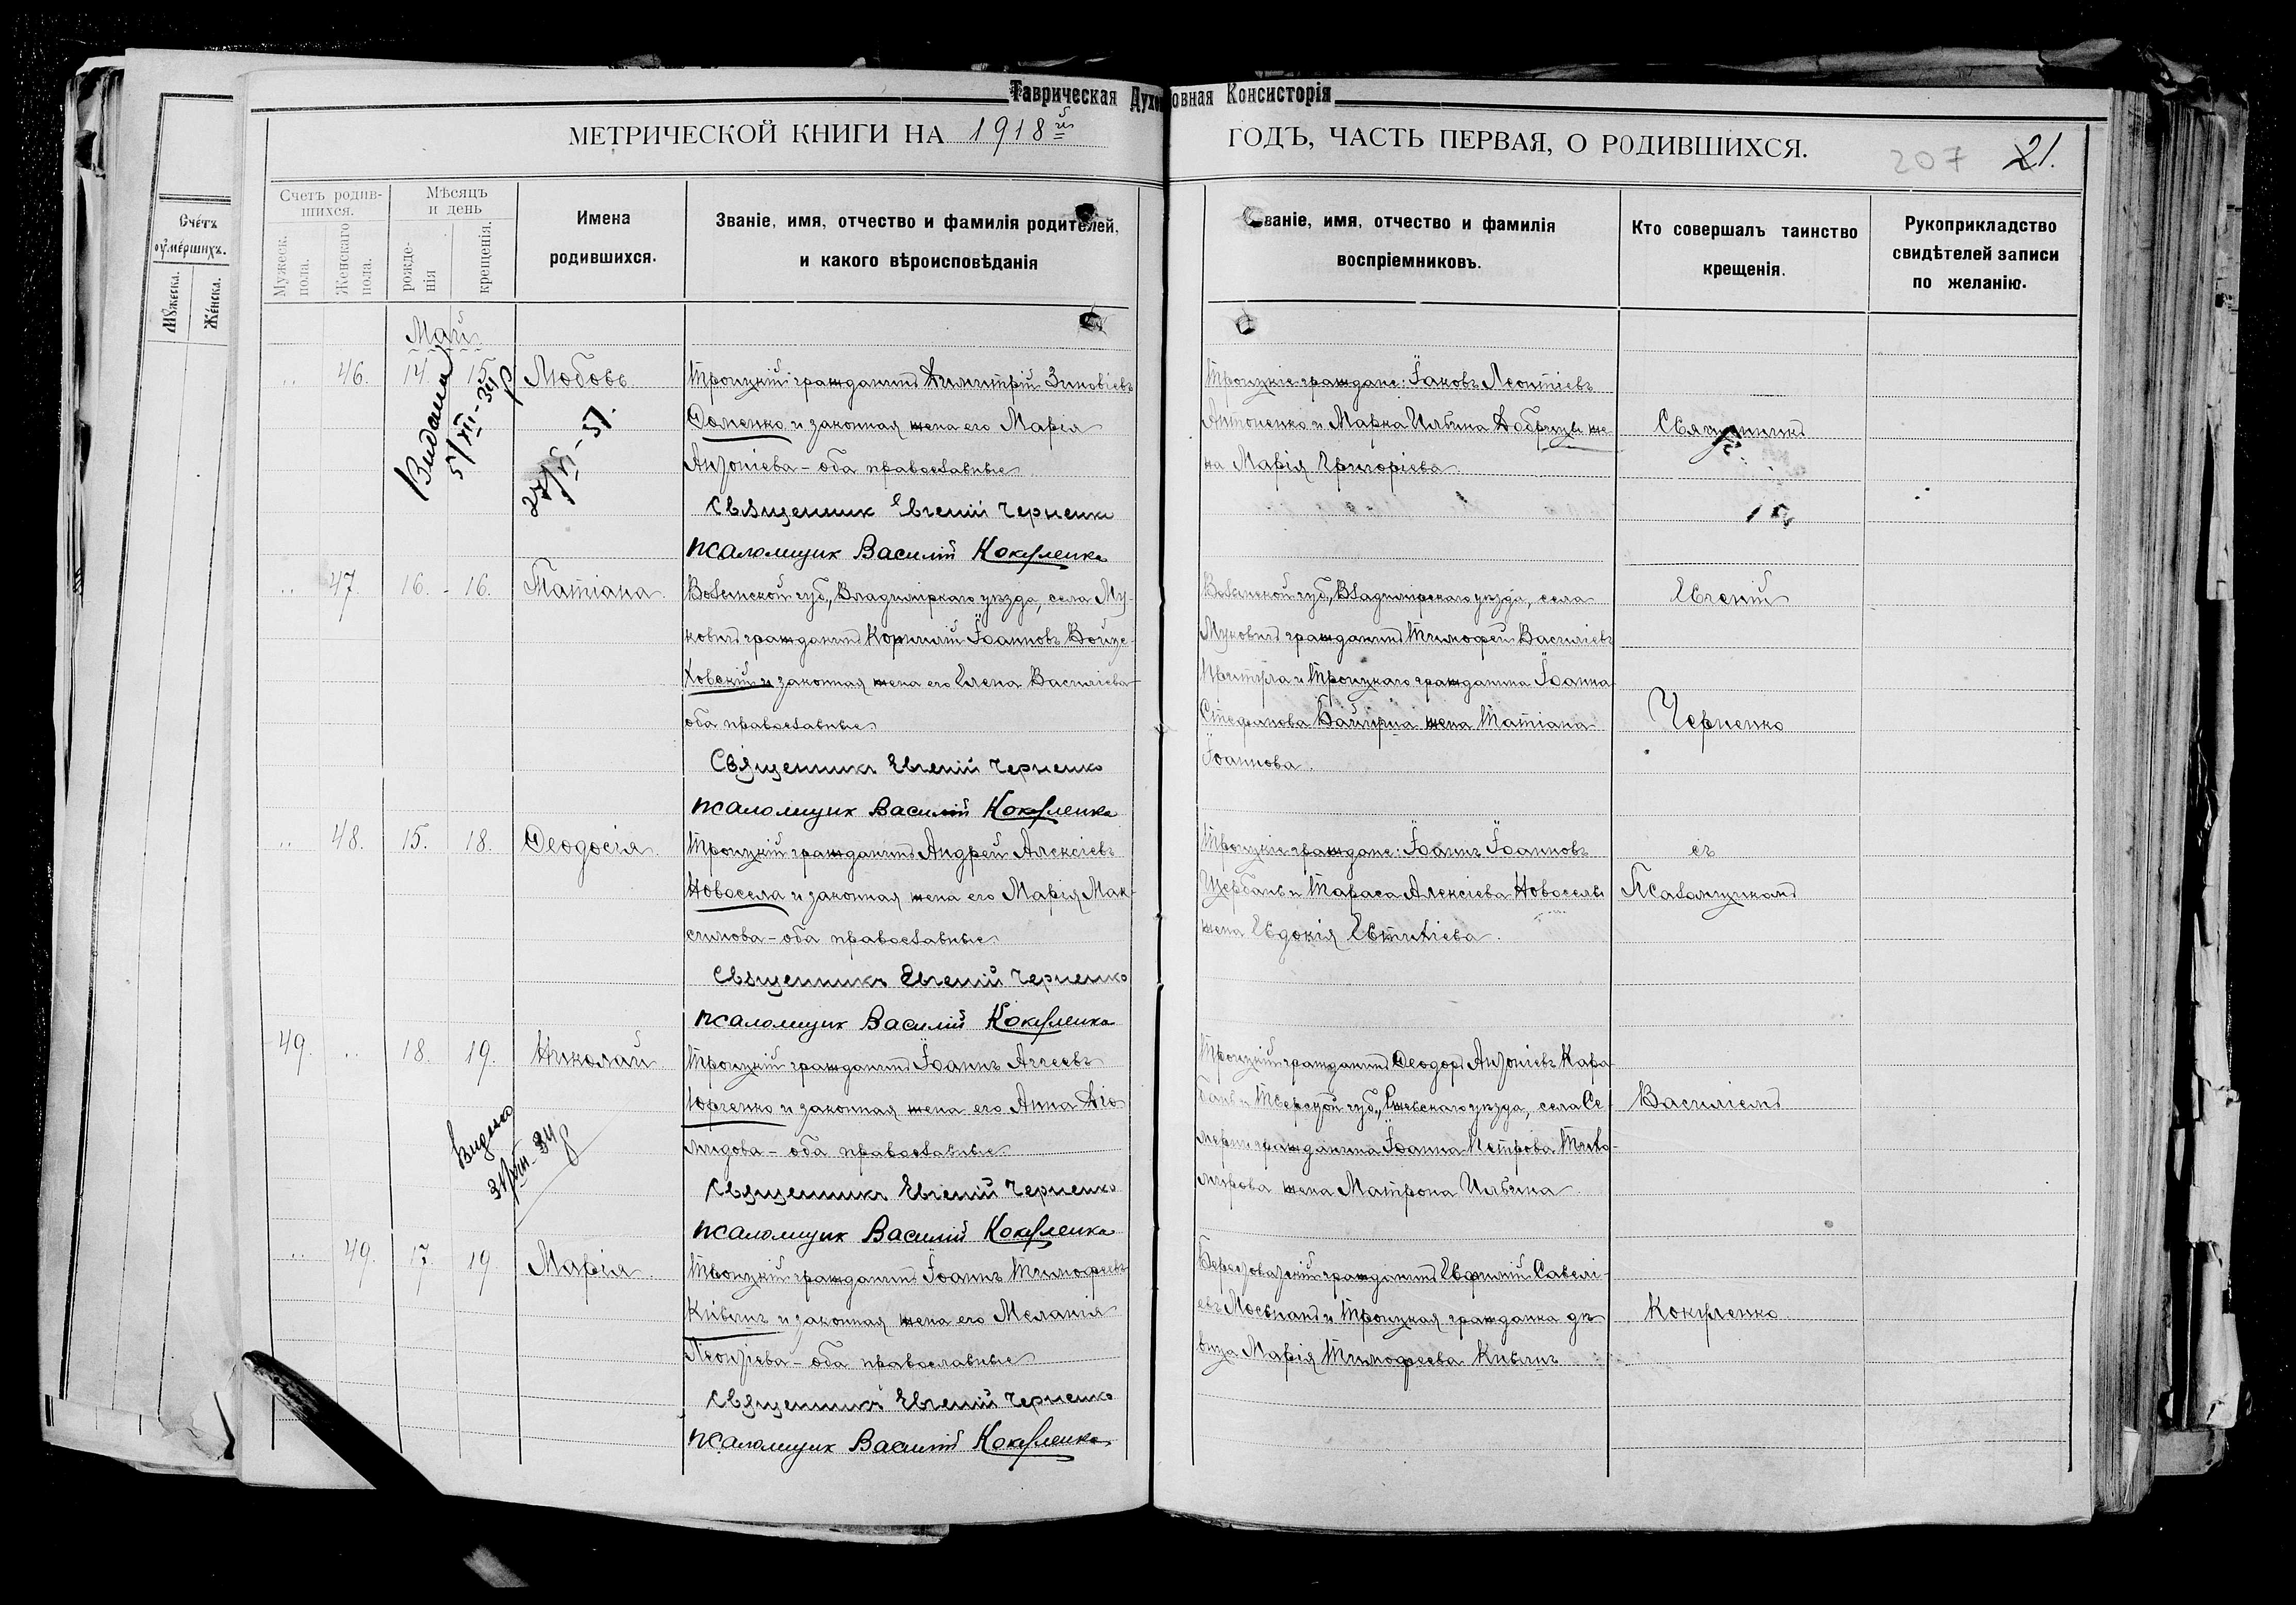 Таврическая Духовная Консисторія
МЕТРИЧЕСКОЙ КНИГИ НА 1918й ГОДЪ, ЧАСТЬ ПЕРВАЯ, О РОДИВШИХСЯ.
207 21.
Счетъ
оумершихъ.
Мужеска.
Женска.
Счетъ родив-
шихся.
Мужеск.
пола.
Женскаго
пола.
Мѣсяцъ
и день
рожде-
нія
крещенія.
Имена
родившихся.
Званіе, имя, отчество и фамилія родителей,
и какого вѣроисповѣданія
Званіе, имя, отчество и фамилія
воспріемниковъ.
Кто совершалъ таинство
крещенія.
Рукоприкладство
свидѣтелей записи
по желанію.
Май
46. 14. 15. Любовь
Троицкій гражданинъ Димитрій Зиновіевъ
Фоменко и законная жена его Марія
Анѳоніева - оба православные
Священник Евгеній Черненко
псаломщик Василій Кокуленко
Троицкіе граждане: Іаковъ Леонтіевъ
Антоненко и Марка Ильина Добрицы же
на Марія Григоріева.
Видана
5/XII-34 р
27/VI-51.
47. 16. - 16. Татіана.
Волынской губ., Владимірскаго уѣзда, села Му-
ковичъ гражданинъ Корнилій Іоанновъ Войце-
ховскій и законная жена его Елена Василіева
оба православные
Священникъ Евгеній Черненко
псаломщик Василій Кокуленко
Волынской губ., Владимірскаго уѣзда, села
Муковичъ гражданинъ Тимофей Василіевъ
и Троицкаго гражданина Іоанна
Стефанова жена Татіана
Іоаннова.
48. 15. 18. Ѳеодосія.
Троицкій гражданинъ Андрей Алексіевъ
Новосела и законная жена его Марія Мак-
симова - оба православные.
Священникъ Евгеній Черненко
псаломщик Василій Кокуленко
Троицкіе граждане: Іоаннъ Іоанновъ
Щербань и Тараса Алексіева Новоселы
жена Евдокія Евтихіева.
49. 18. 19. Николай
Троицкій гражданинъ Іоаннъ Аггеевъ
Юрченко и законная жена его Анна Діо
мидова - оба православные
Священникъ Евгеній Черненко
псаломщик Василій Кокуленко
Троицкій гражданинъ Ѳеодоръ Анѳоніевъ Кара-
бань и Тверской губ., Ржевскаго уѣзда, села Се
гражданина Іоанна Петрова Тихо-
мирова жена Матрона Ильина
Видано
49. 17. 19. Марія.
Троицкій гражданинъ Іоаннъ Тимофеевъ
Кившъ и законная жена его Меланія
Леонтіева - оба православные
Священникъ Евгеній Черненко
псаломщик Василій Кокуленко
гражданинъ Евфимій Савелі-
евъ и Троицкая гражданка дѣ
вица Марія Тимофеева Кившъ
Священникъ
Евгеній
Черненко
съ
Псаломщикомъ
Василіемъ
Кокуленко